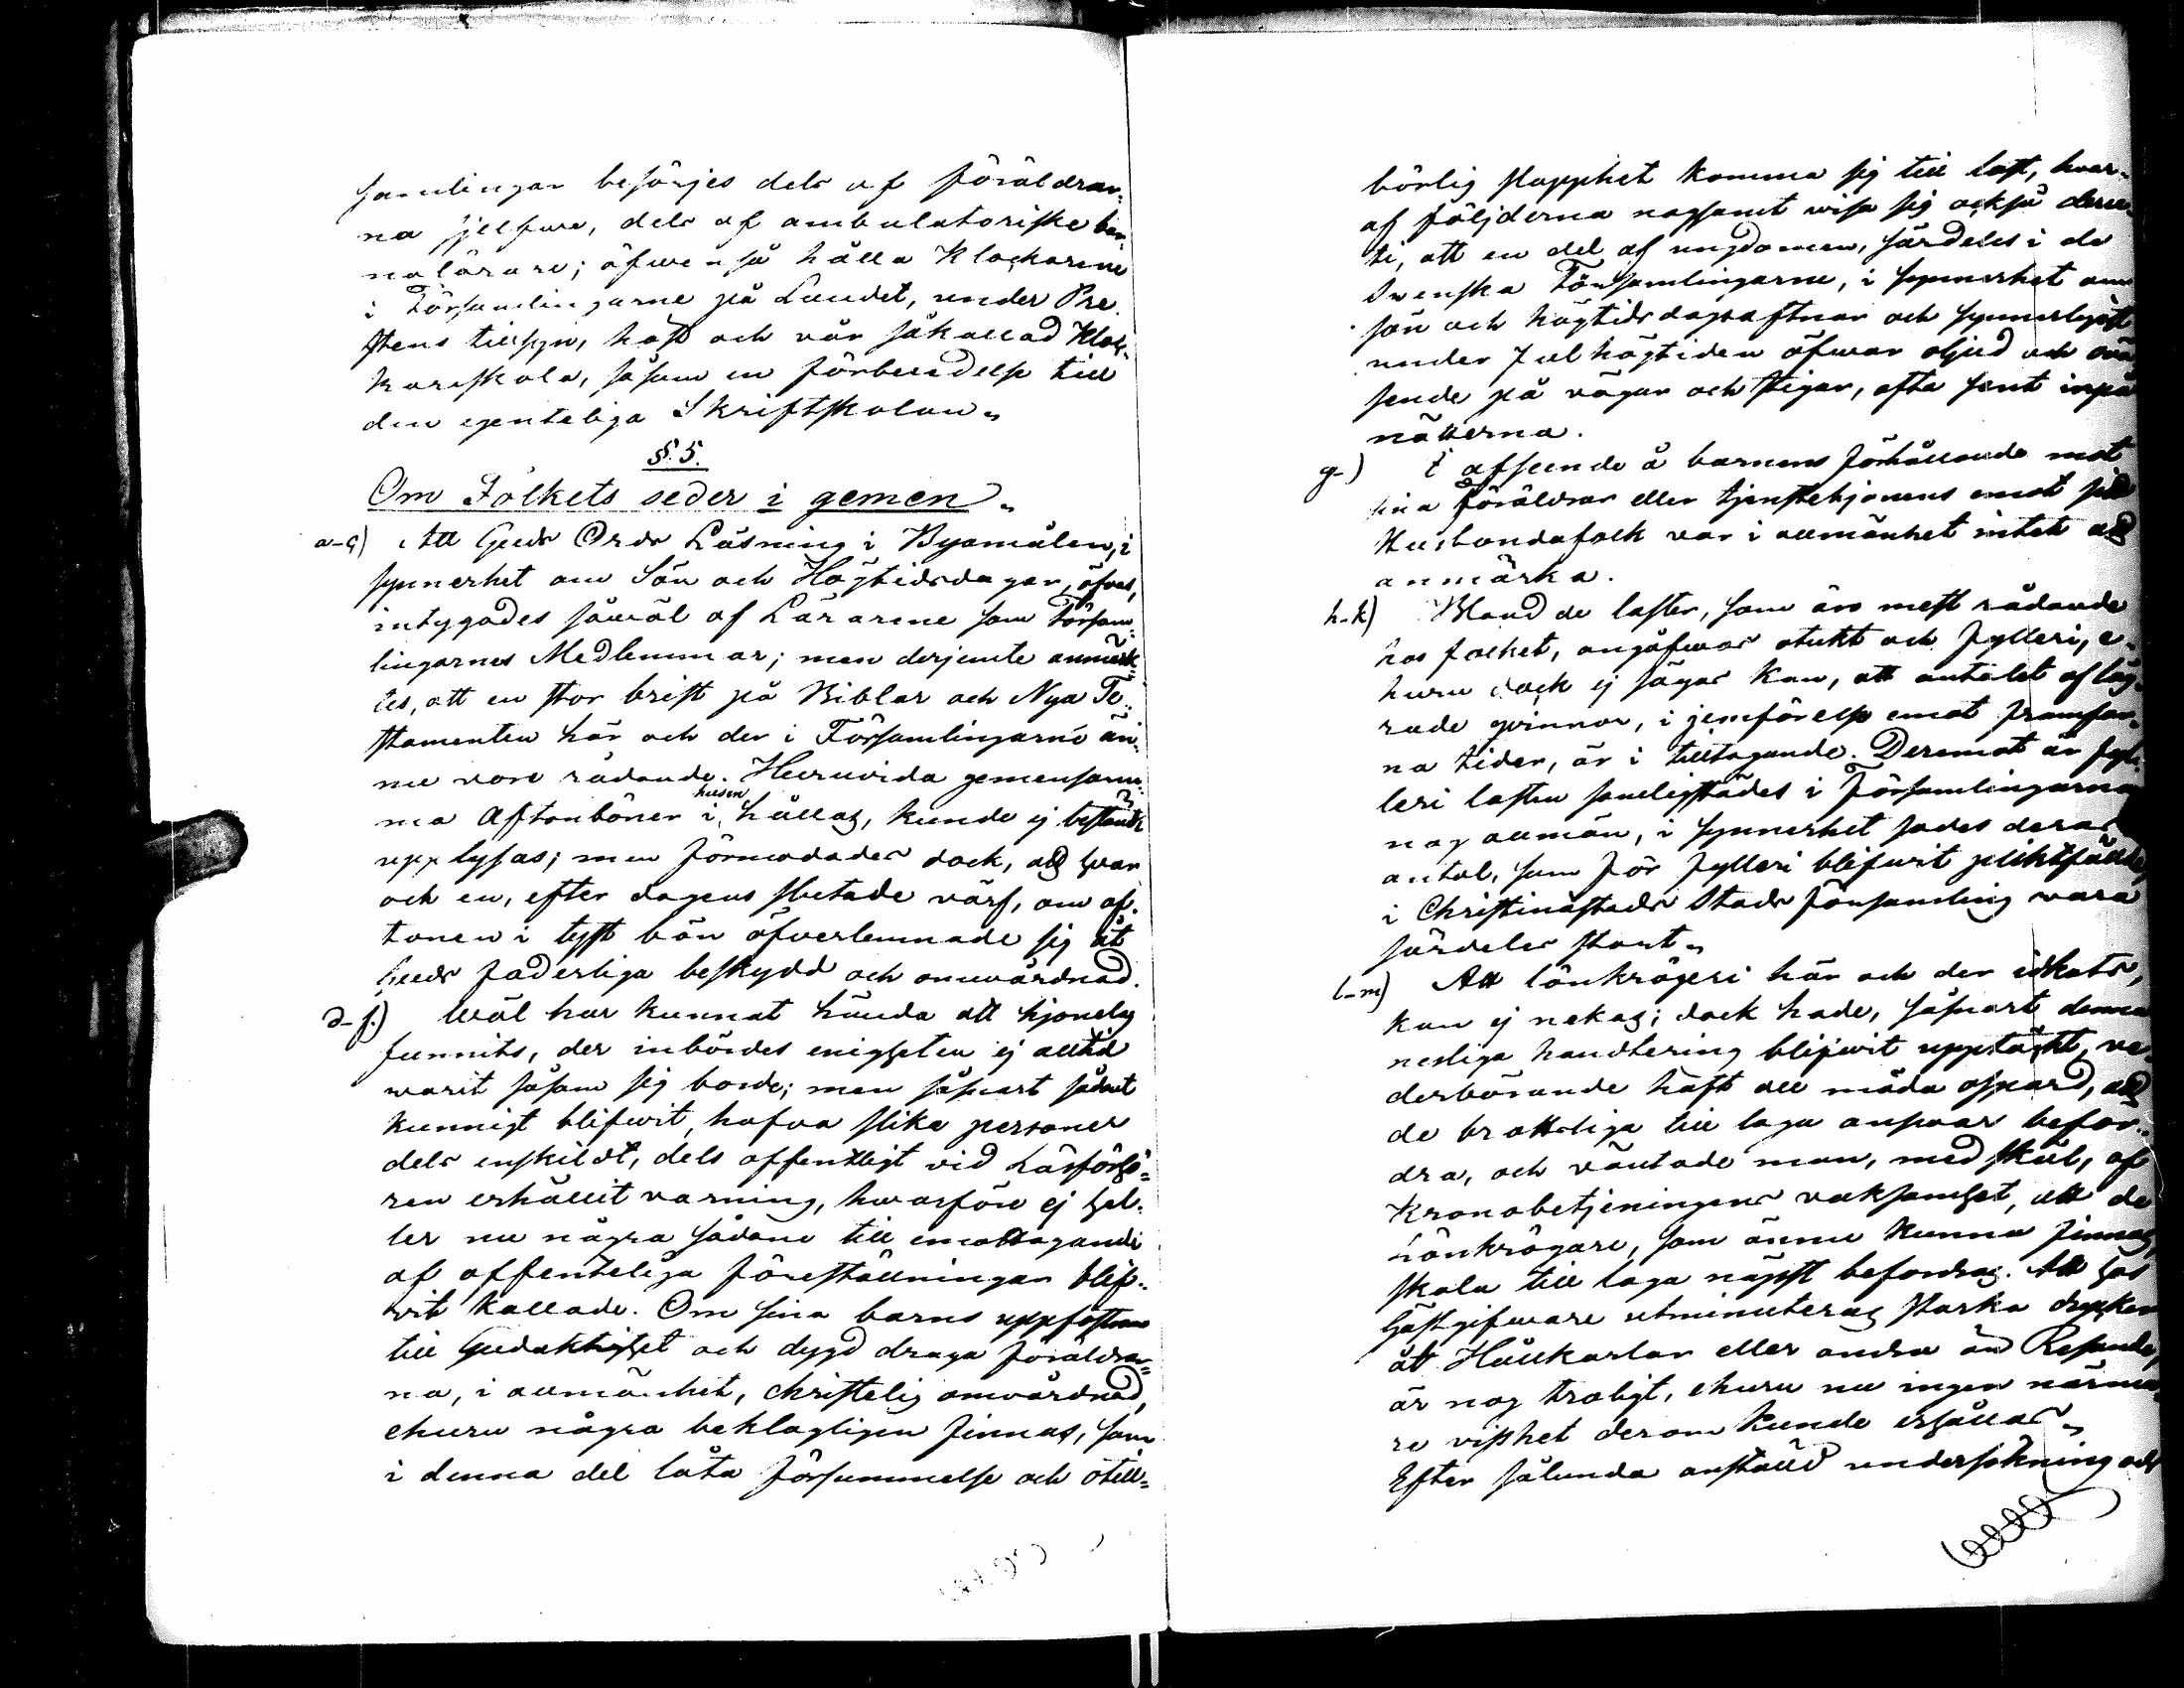 samlingar besörjes dels af föräldrar=
na sjelfwe, dels af ambulatoriske bar=
nalärare; äfwenså hålla Klockarene
i Församlingarne på Landet, under Pre=
stens tillsyn, höst och vår såkallad Kloc=
kareskola, såsom en förberedelse till
den egenteliga Skriftskolan.
§. 5.
Om Folkets seder i gemen.
a-c) Att Guds Ords Läsning i Byamålen, i
synnerhet om Sön och Högtidsdagar, öfvas,
intygades såwäl af Lärarene som Försam=
lingarnes Medlemmar; men derjemte anmärk=
tes, att en stor brist på Biblar och Nya Te=
stamenten här och der i Församlingarne än=
nu vore rådande. Huruvida gemensam=
ma Aftonböner i husen hållas, kunde ej bestämdt
upplysas; men förmodades dock, att hvar
och en, efter dagens slutade värf, om af=
tonen i tyst bön öfverlemnade sig åt
Guds faderliga beskydd och omwårdnad.
d-f.) Wäl har kunnat hända att hjonelag
funnits, der inbördes enigheten ej alltid
warit såsom sig borde; men såsnart sådant
kunnigt blifwit, hafva slike personer
dels enskildt, dels offentligt vid Läsförhö=
ren erhållit varning, hwarföre ej hel=
ler nu några sådane till emottagande
af offenteliga föreställningar blif=
vit kallade. Om sina barns uppfostran
till Gudaktighet och dygd draga föräldrar=
na, i allmänhet, christelig omvårdnad,
churu några beklagligen finnas, som
i denna del låta försummelse och otill=
börlig slapphet komma sig till last, hvar=
af följderna nogsamt wisa sig också deru=
ti, att en del af ungdomen, särdeles i de
Swenska Församlingarne, i synnerhet om
sön och högtidsdagsaftnar och synnerligast
under Julhögtiden öfwar oljud och ovä=
sende på vägar och stigar, ofta sent inpå
nätterna.
g-) I afseende å barnens förhållande mot
sina Föräldrar eller tjenstehjonens emot sitt
Husbondafolk var i allmänhet intet att
anmärka.
h-k) Bland de laster, som äro mest rådande
hos folket, angåfwos otukt och fylleri, e=
huru dock ej sägas kan, att antalet af läg=
rade qvinnor, i jemförelse emot framfar=
na tider, är i tilltagande. Deremot är fyl=
leri lasten samligstädes i Församlingarna
nog allmän, i synnerhet sades deras
antal, som för fylleri blifwit pliktfällde,
i Christinæstads Stads församling vara
särdeles stort.
l-m) Att lönkrögeri här och der idkats,
kan ej nekas; dock hade, såsnart denna
nesliga handtering blifwit upptäckt, ve=
derbörande haft all möda ospard, att
de brottsliga till laga answar befor=
dra, och väntade man, med skäl, af
Kronobetjeningens vaksamhet, att de
Lönkrögare, som ännu kunna finnas,
skola till laga näpst befordras. Att hos
Gästgifware utminuteras starka drycker
åt Hållkarlar eller andra än Resande,
är nog troligt, churu nu ingen närma=
re visshet derom kunde erhållas.
Efter sålunda anställd undersökning och